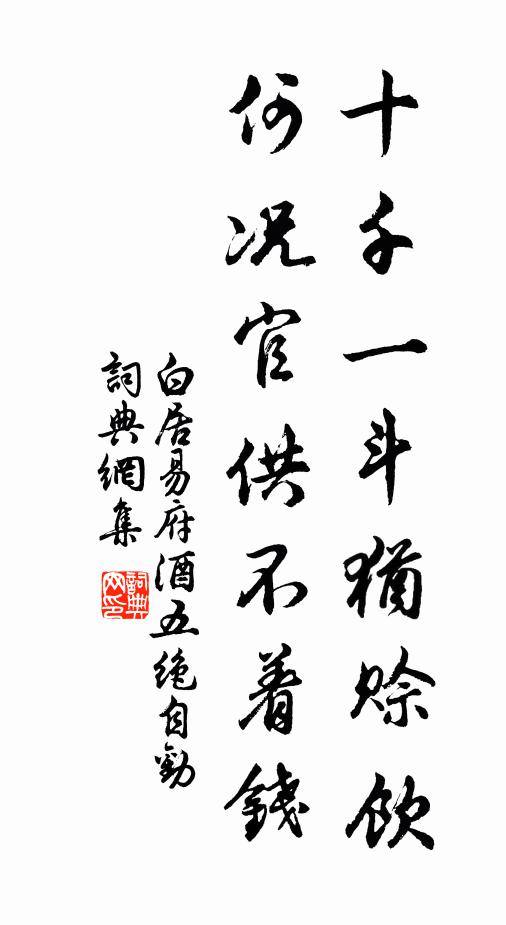 十千一斗猶賒飲
何况官供不着錢
白居易府酒五絶自勸
詞典網集
詞典网印